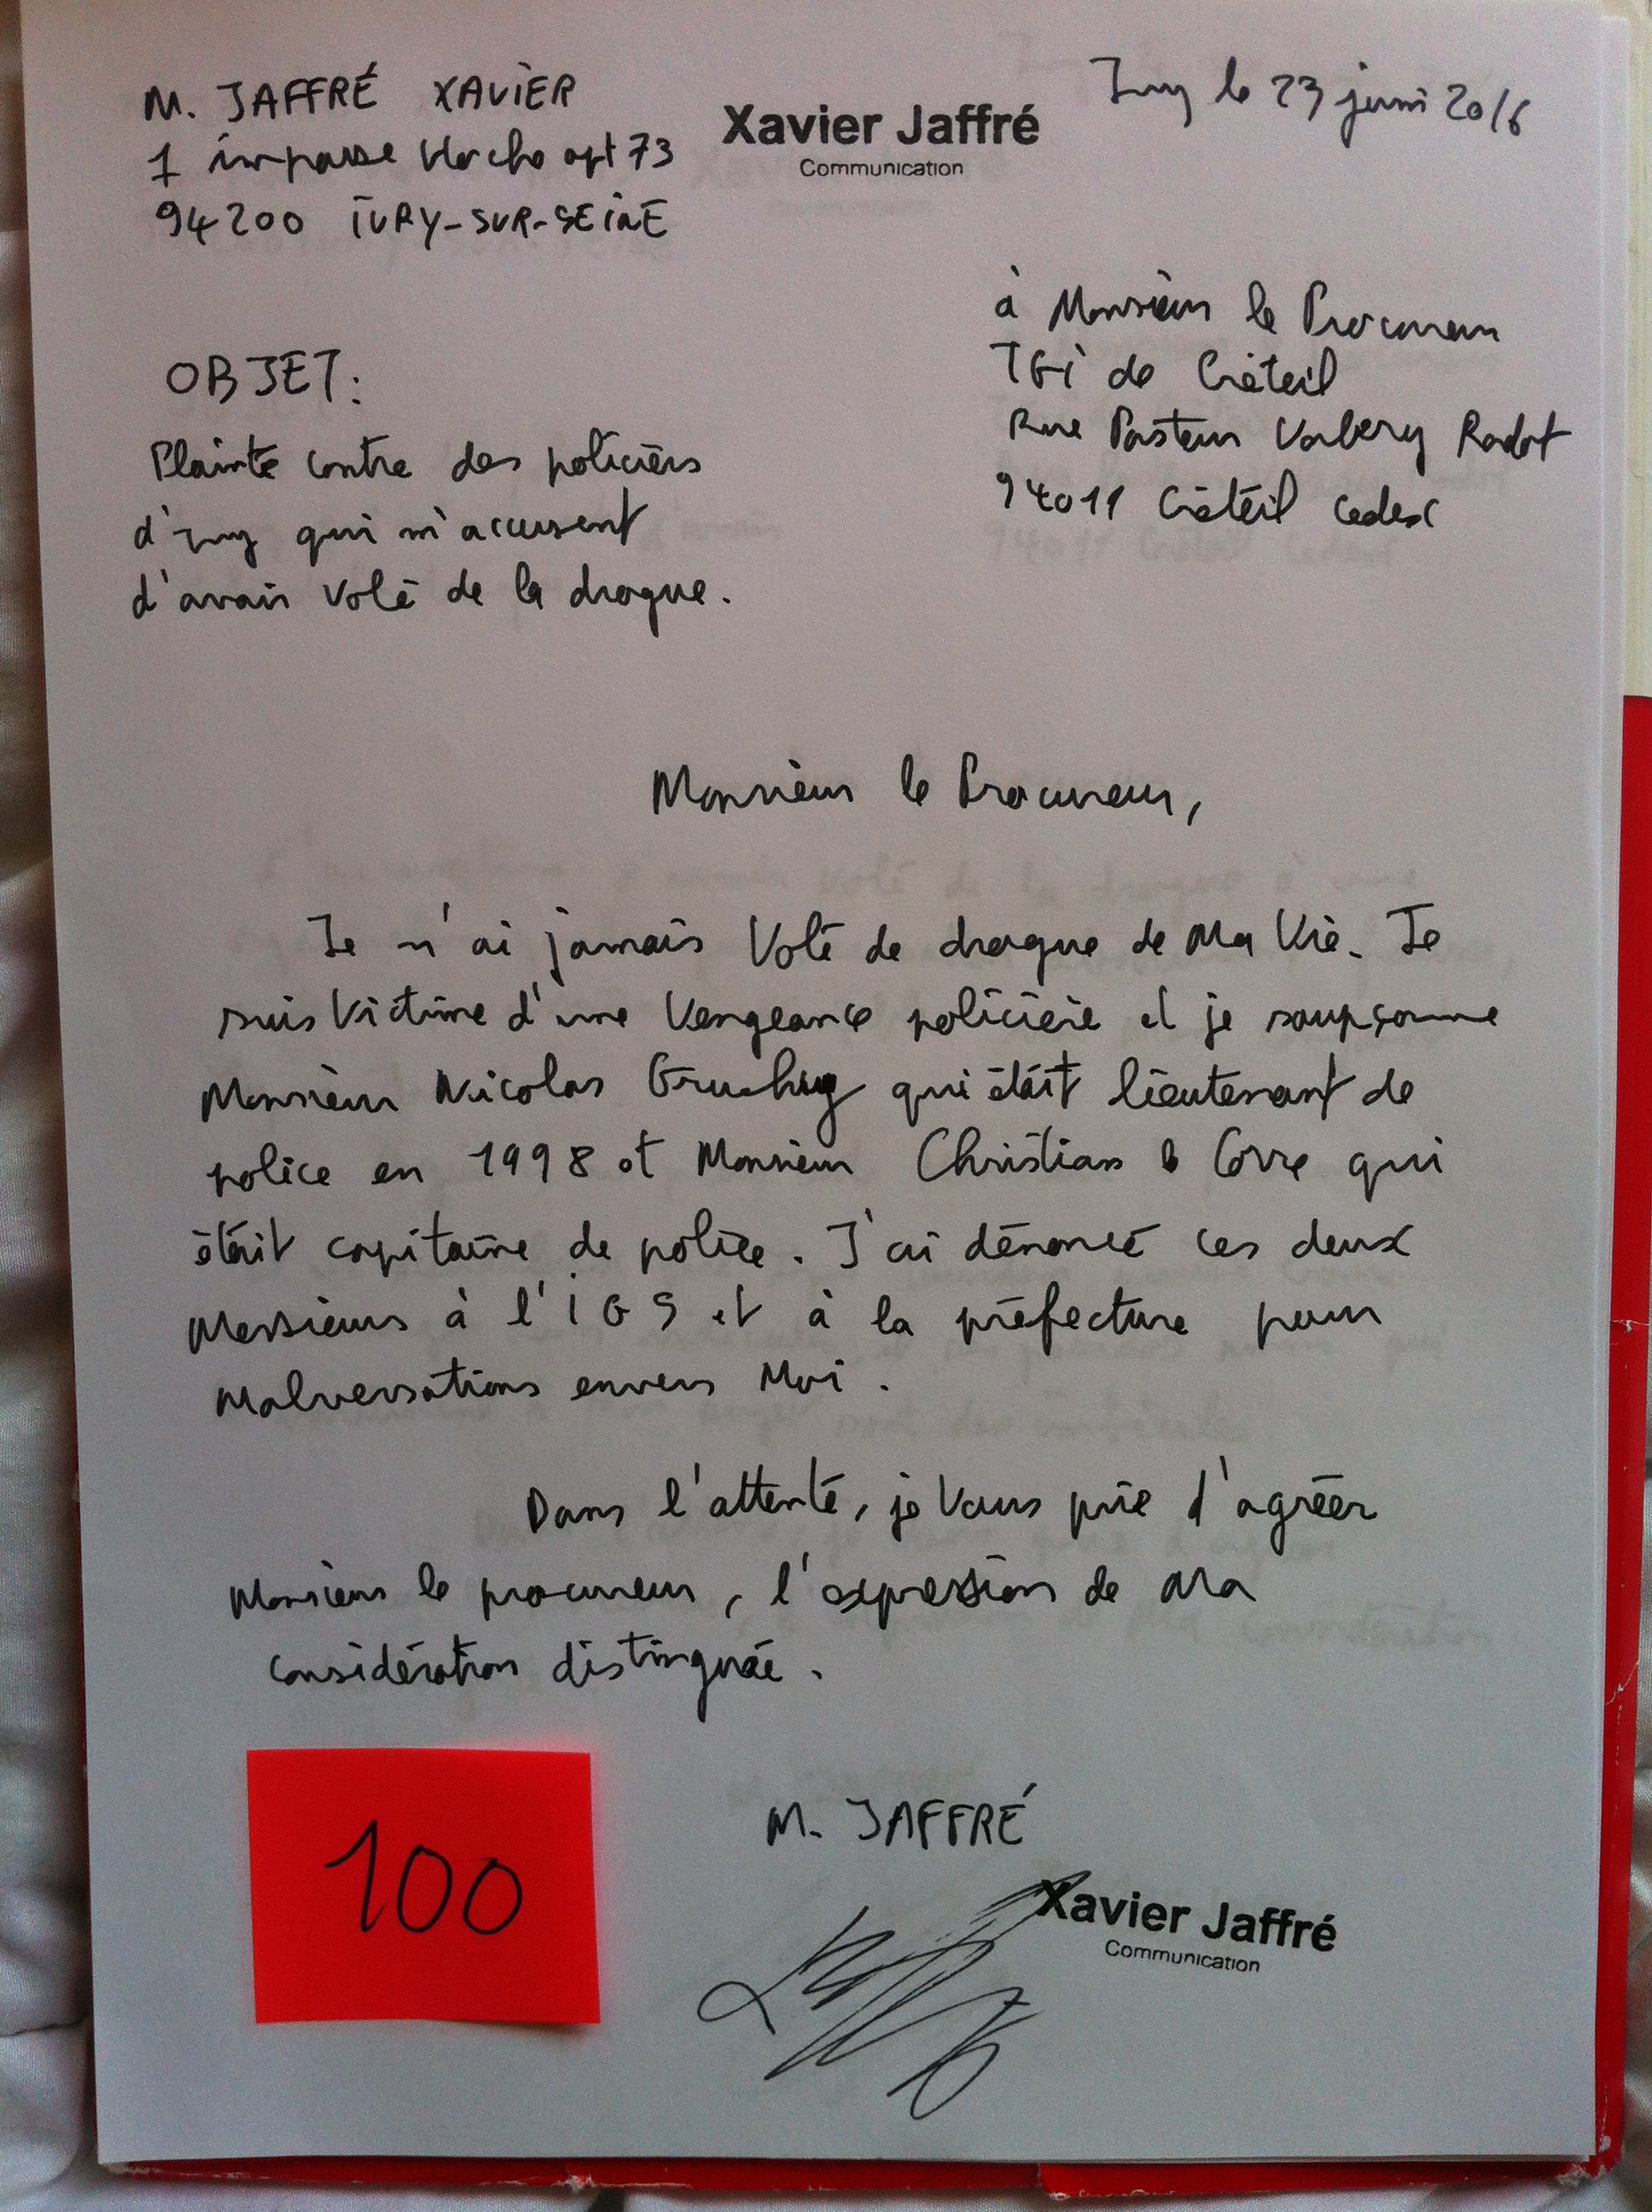 M. JAFFRÉ XAVIER
1 impasse Hoche apt 73
94200 IVRY-SUR-SEINE
Xavier Jaffré
Communication
Ivry le 23 juin 2016
à Monsieur le Procureur
TGI de Créteil
Rue Pasteur Valery Radot
94011 Créteil cedex
OBJET:
Plainte contre des policiers
d'Ivry qui m'accusent
d'avais volé de la drogue.
Monsieur le Procureur,
Je n'ai jamais volé de drogue de ma vie. Je
suis victime d'une vengeance policière et je soupçonne
Monsieur Nicolas qui était lieutenant de
police en 1998 et Monsieur Christian le Corre qui
était capitaine de police. J'ai dénoncé ces deux
Messieurs à l'IGS et à la préfecture pour
malversations envers moi.
Dans l'attente, je vous prie d'agréer
Monsieur le procureur, l'expression de ma
considération distinguée.
100
M. JAFFRÉ
Xavier Jaffré
Communication